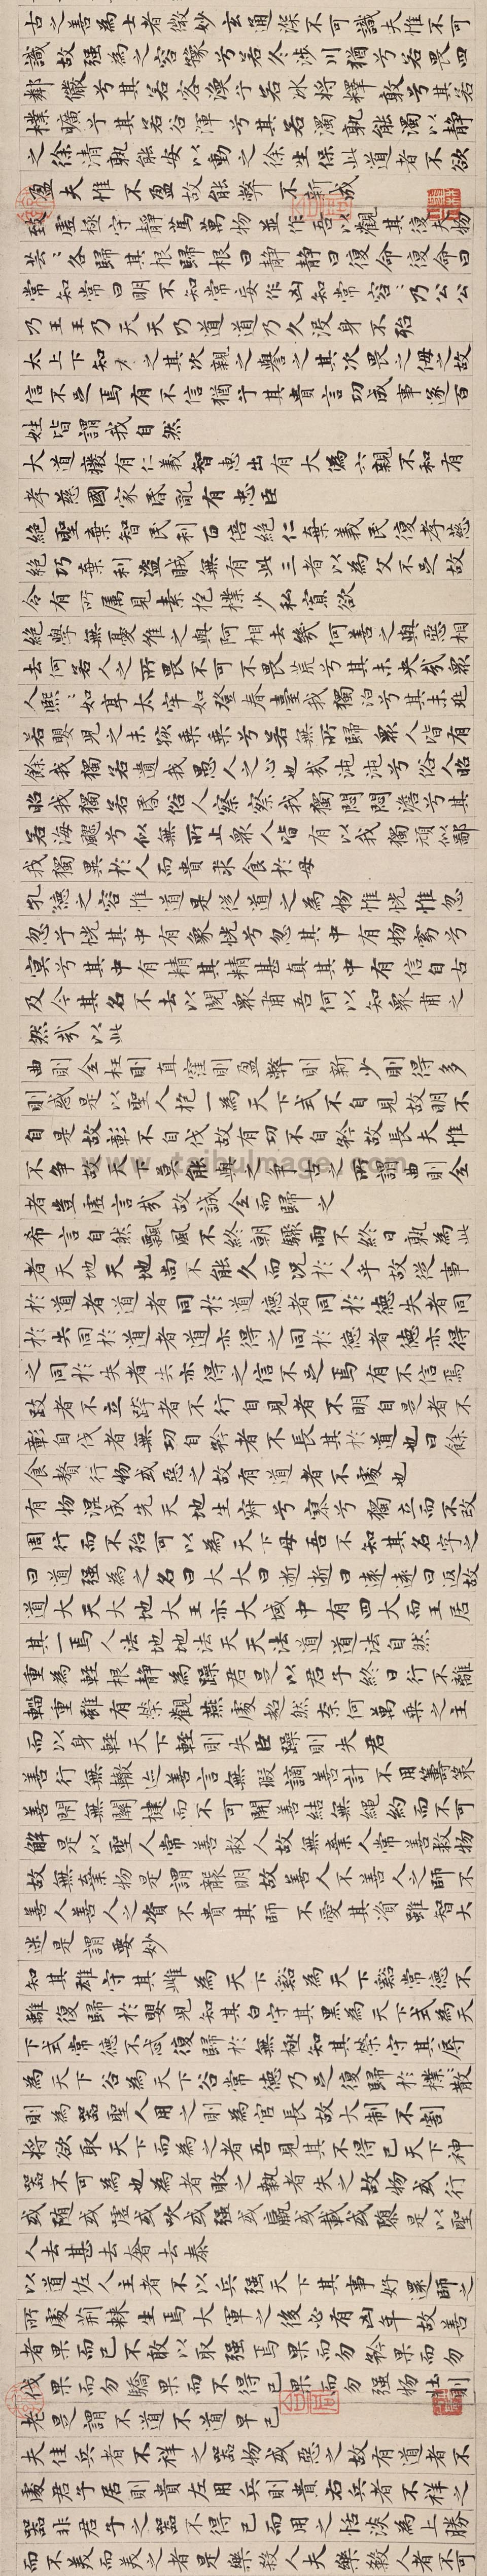 古之善為士者微妙玄通深不可識夫惟不可
識故強為之容豫兮若冬涉川猶兮若畏四
鄰儼兮其若容渙兮若冰將釋敦兮其若
樸曠兮其若谷渾兮其若濁孰能濁以靜
之徐清孰能安以動之徐生保此道者不欲
盈夫惟不盈故能弊不新成
致虛極守靜篤萬物並作吾以觀其復夫物
芸芸各歸其根歸根曰靜靜曰復命復命曰
常知常曰明不知常妄作凶知常容容乃公公
乃王王乃天天乃道道乃久沒身不殆
太上下知有之其次親之譽之其次畏之侮之故
信不足焉有不信猶兮其貴言功成事遂百
姓皆謂我自然
大道廢有仁義智惠出有大偽六親不和有
孝慈國家昏亂有忠臣
絕聖棄智民利百倍絕仁棄義民復孝慈
絕巧棄利盜賊無有此三者以為文不足故
令有所属見素抱樸少私寡欲
絕學無憂唯之與阿相去幾何善之與惡相
去何若人之所畏不可不畏荒兮其未央哉眾
人熙熙如享太牢如登春臺我獨泊兮其未兆
若嬰兒之未孩乘乘兮若無所歸眾人皆有
餘我獨若遺我愚人之心也哉沌沌兮俗人昭
昭我獨若昏俗人察察我獨悶悶澹兮其
若海飂兮似無所止眾人皆有以我獨頑似鄙
我獨異於人而貴求食於母
孔德之容惟道是從道之為物惟恍惟忽
忽兮恍其中有象恍兮忽其中有物窈兮
冥兮其中有精其精甚真其中有信自古
及今其名不去以閱衆甫吾何以知衆甫之
然哉以此
曲則全枉則直窪則盈弊則新少則得多
則惑是以聖人抱一為天下式不自見故明不
自是故彰不自伐故有功不自矜故長夫惟
不爭故天下莫能與之爭古之所謂曲則全
者豈虛言哉故誠全而歸之
希言自然飄風不終朝驟雨不終日孰為此
者天地天地尚不能久而況於人乎故從事
於道者道者同於道德者同於德失者同
於失同於道者道亦得之同於德者德亦得
之同於失者失亦得之信不足焉有不信焉
跂者不立跨者不行自見者不明自是者不
彰自伐者無功自矜者不長其於道也曰餘
食贅行物或惡之故有道者不處也
有物混成先天地生寂兮寥兮獨立而不改
周行而不殆可以為天下母吾不知其名字之
曰道強為之名曰大大曰逝逝曰遠遠曰返故
道大天大地大王亦大域中有四大而王居
其一焉人法地地法天天法道道法自然
重為輕根靜為躁君是以君子終日行不離
輜重雖有榮觀燕處超然奈何萬乘之主
而以身輕天下輕則失臣躁則失君
善行無轍迹善言無瑕讁善計不用籌策
善閉無關楗而不可開善結無繩約而不可
解是以聖人常善救人故無棄人常善救物
故無棄物是謂襲明故善人不善人之師不
善人善人之資不貴其師不愛其資雖智大
迷是謂要妙
知其雄守其雌為天下谿為天下谿常德不
離復歸於嬰兒知其白守其黑為天下式為天
下式常德不忒復歸於無極知其榮守其辱
為天下谷為天下谷常德乃足復歸於樸樸散
則為器聖人用之則為官長故大制不割
將欲取天下而為之者吾見其不得已天下神
器不可為也為者敗之執者失之故物或行
或隨或噓或吹或強或羸或載或隳是以聖
人去甚去奢去泰
以道佐人主者不以兵強天下其事好還師之
所處荊棘生焉大軍之後必有凶年故善
者果而已不敢以取強焉果而勿矜果而勿
伐果而勿驕果而不得已果而勿強物壯則
老是謂不道不道早已
夫佳兵者不祥之器物或惡之故有道者不
處君子居則貴左用兵則貴右兵者不祥之
器非君子之器不得已而用之恬淡為上勝
而不美而美之者是樂殺人夫樂殺人者不可